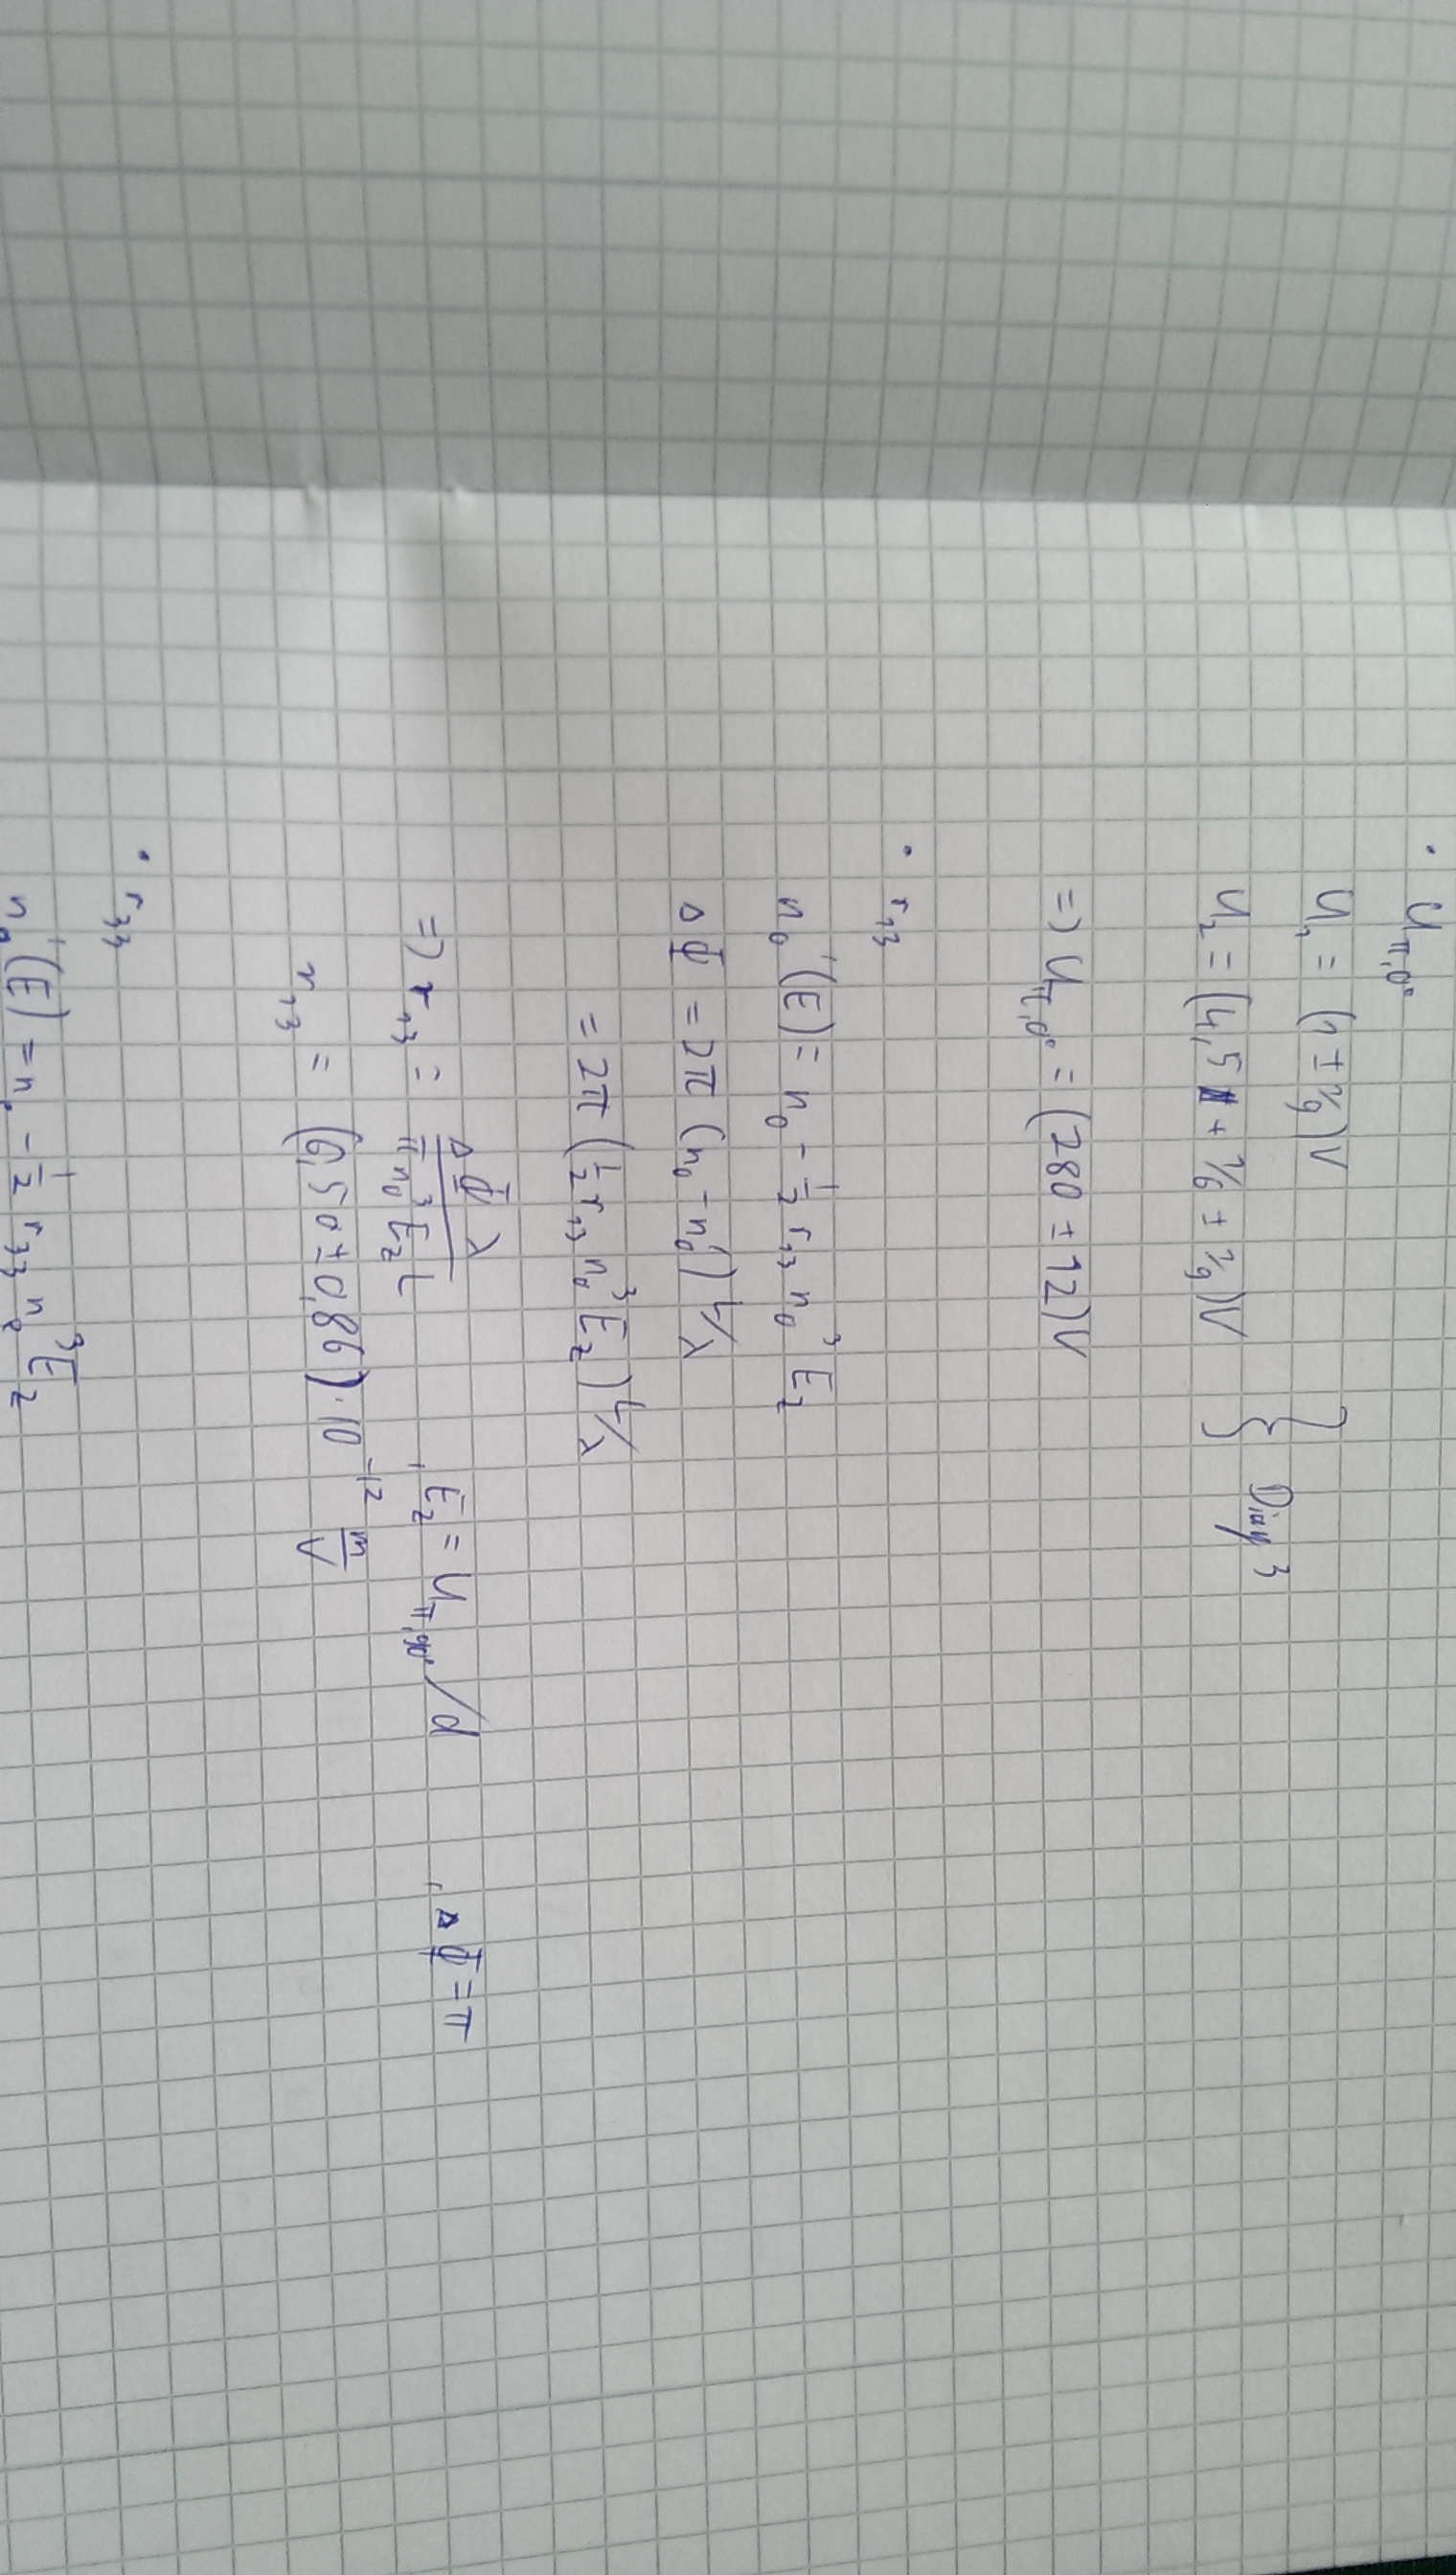 · U_{π,0°}
U₁ = (1 ± 1/9)V
U₂ = (4,5 + 1/6 ± 1/9)V } Diag 3
=> U_{π,0°} = (280 ± 12)V
· r₁₃
n₀'(E) = n₀ - 1/2 r₁₃ n₀³ E_z
ΔΦ = 2π (n₀ - n₀') L/λ
= 2π (1/2 r₁₃ n₀³ E_z) L/λ
=> r₁₃ = ΔΦ λ / π n₀³ E_z L , E_z = U_{π,90°}/d , ΔΦ = π
r₁₃ = (6,50 ± 0,86) · 10⁻¹² m/V
· r₃₃
nₑ'(E) = nₑ - 1/2 r₃₃ nₑ³ E_z